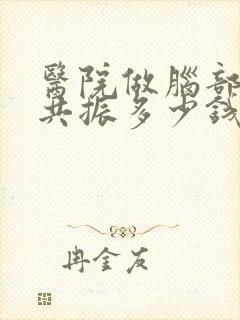 醫院做腦部
共振多少錢
冉金友